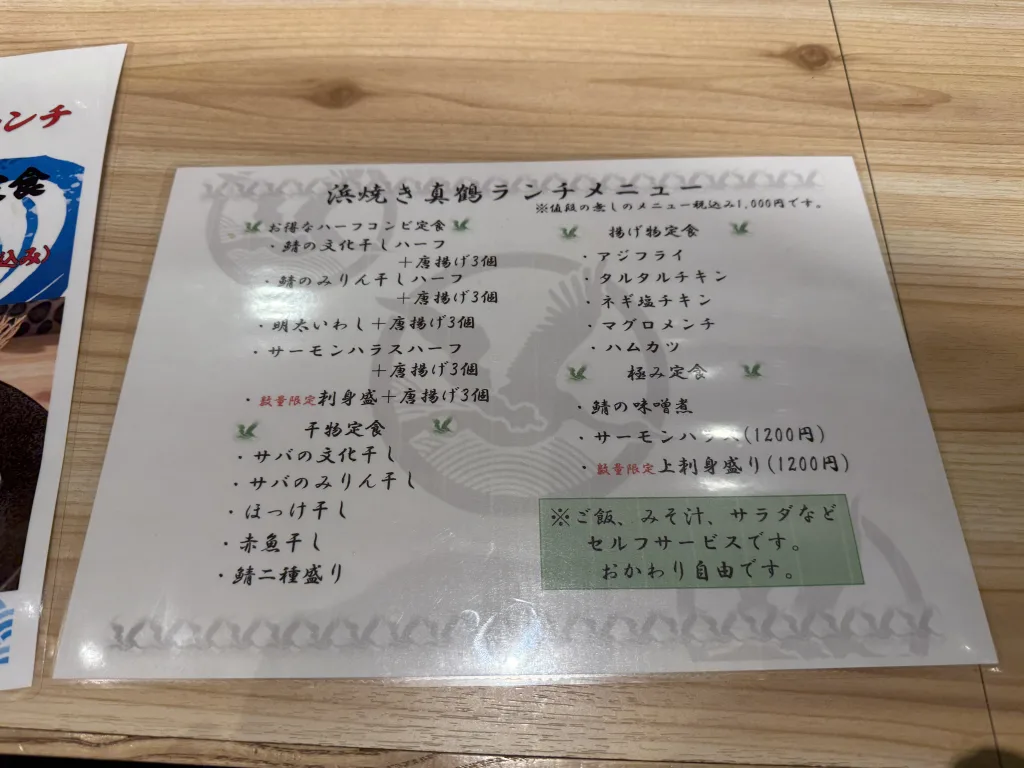 ンチ
定食
込み)
浜焼き真鶴ランチメニュー
※値段の無しのメニュー税込み1,000円です。
お得なハーフコンビ定食
・鯖の文化干しハーフ
＋唐揚げ3個
・鯖のみりん干しハーフ
＋唐揚げ3個
・明太いわし＋唐揚げ3個
・サーモンハラスハーフ
＋唐揚げ3個
・数量限定刺身盛＋唐揚げ3個
干物定食
・サバの文化干し
・サバのみりん干し
・ほっけ干し
・赤魚干し
・鯖二種盛り
揚げ物定食
・アジフライ
・タルタルチキン
・ネギ塩チキン
・マグロメンチ
・ハムカツ
極み定食
・鯖の味噌煮
・サーモンハラス(1200円)
・数量限定上刺身盛り(1200円)
※ご飯、みそ汁、サラダなど
セルフサービスです。
おかわり自由です。